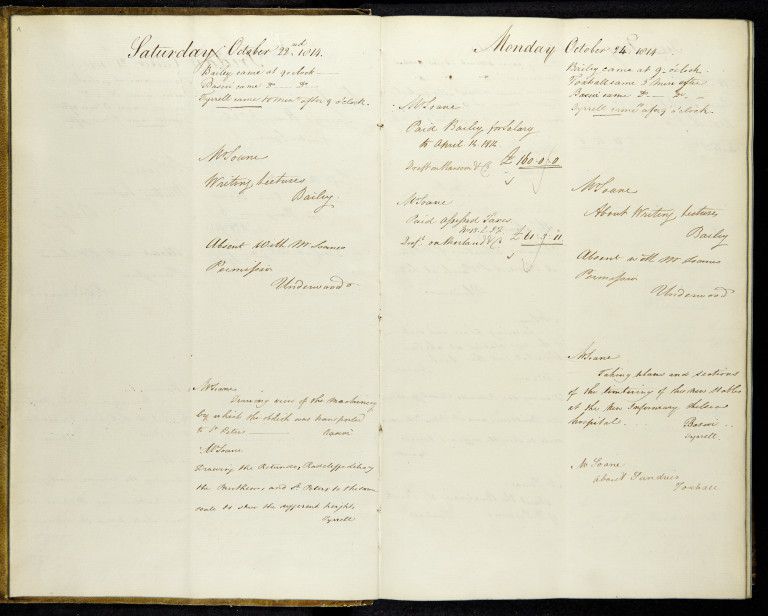 Saturday October 22nd 1814.
Bailey came at 9 oclock
Basevi came Do — Do —
Tyrrell came 10 Mints after 9 o'clock.
Mr Soane
Writing Lectures
Bailey
Absent with Mr Soanes
Permission
Underwood
Mr Soane
Drawing view of the Machinery
by which the Obelisk was transported
to St Peters
Basevi
Mr Soane
Drawing the Rotunda, Radcliffe Library
the Pantheon, and St Peters to the same
scale to shew the different heights
Tyrrell
Monday October 24. 1814
Bailey came at 9 o'clock.
Foxhall came 5 Mins after
Basevi came Do — Do —
Tyrrell came 9 o'clock.
Mr Soane
Paid Bailey for Salary
to April 14 1814
Draft on Ransom & Co £ 160.0.0
Mr Soane
Paid Assessed Taxes
Draft on Morland & Co £ 61.3.11
Mr Soane
About Writing Lectures
Bailey
Absent with Mr Soanes
Permission
Underwood
Mr Soane
Taking plans and sections
of the timbering of the new Stables
at the New Infirmary Chelsea
hospital.
Basevi
Tyrrell.
Mr Soane
about Sundries
Foxhall